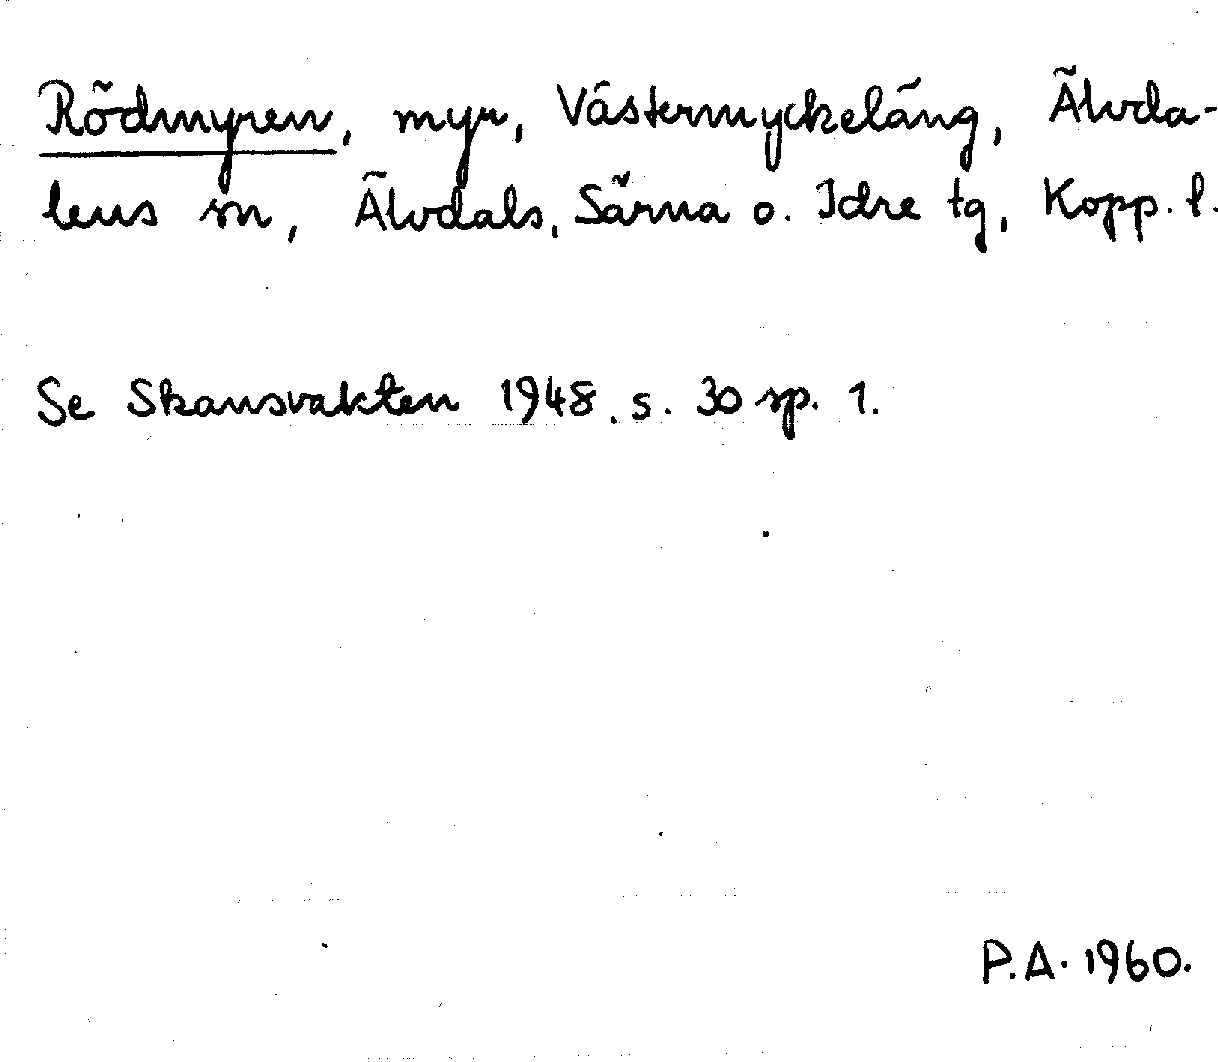 Rödmyren, myr, Västermyckeläng, Älvda-
lens sn, Älvdals, Särna o. Idre tg, Kopp. l.
Se Skansvakten 1948. s. 30 sp. 1.
P.A. 1960.